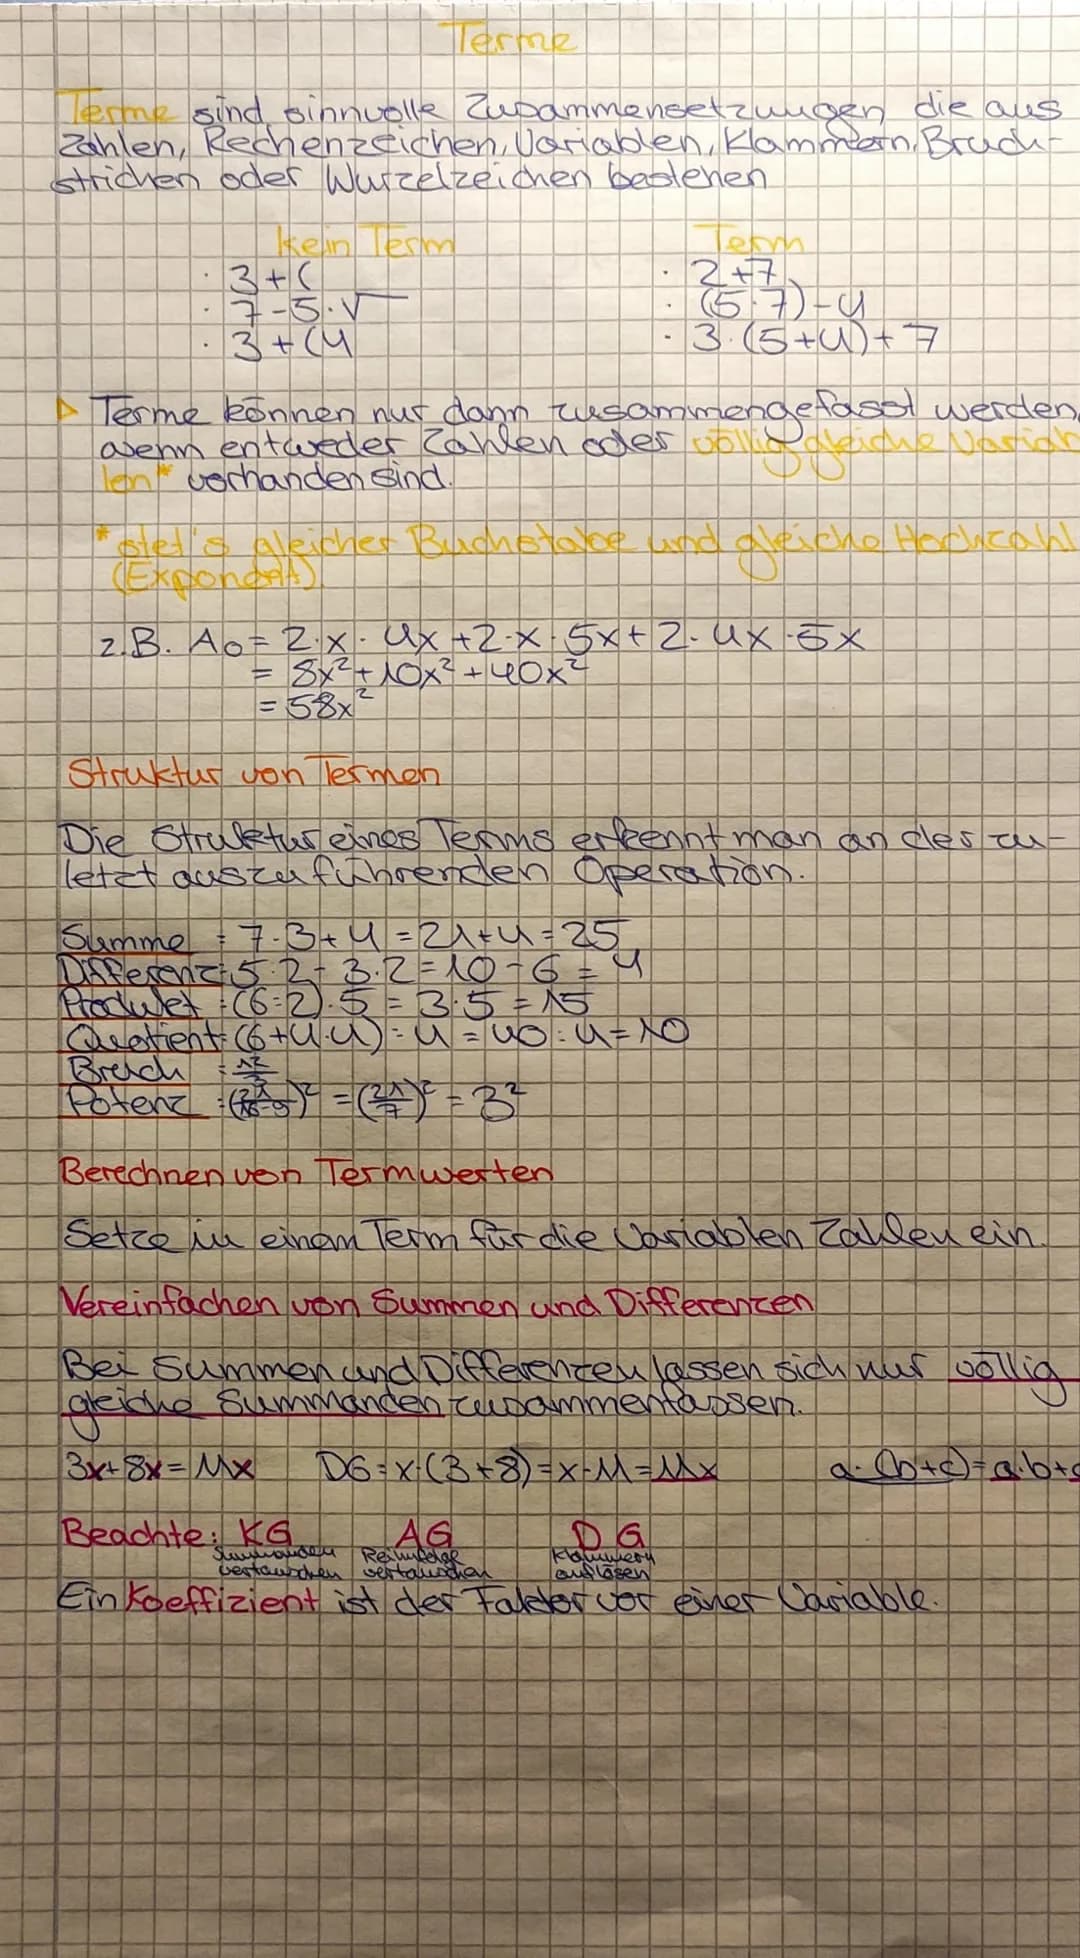 Terme
Terme sind sinnvolle Zusammensetzungen, die aus
Zahlen, Rechenzeichen, Variablen, Klammern, Bruch-
strichen oder Wurzelzeichen bestehen
kein Term Term
· 3+( · 2+7
· 7-5·√ · (5·7)-4
· 3+(4 · 3·(5+4)+7
▷ Terme können nur dann zusammengefasst werden,
wenn entweder Zahlen oder völlig gleiche Variab
len* vorhanden sind.
*stet's gleicher Buchstabe und gleiche Hochzahl
(Exponent).
z.B. Ao = 2·x·4x+2·x·5x+2·4x·5x
= 8x²+10x²+40x²
= 58x²
Struktur von Termen
Die Struktur eines Terms erkennt man an der zu-
letzt auszuführenden Operation.
Summe : 7·3+4=21+4=25
Differenz: 5·2-3·2=10-6=4
Produkt : (6:2)·5=3·5=15
Quotient: (6+4·4):4=40:4=10
Bruch :
Potenz : =(21/7)²=3²
Berechnen von Termwerten
Setze in einem Term für die Variablen Zahlen ein.
Vereinfachen von Summen und Differenzen
Bei Summen und Differenzen lassen sich nur völlig
gleiche Summanden zusammenfassen.
3x+8x=11x DG: x·(3+8)=x·11=11x a·(b+c)=a·b+
Beachte: KG AG DG
Summanden Reihnfolge Klammern
vertauschen vertauschen auflösen
Ein Koeffizient ist der Faktor vor einer Variable.